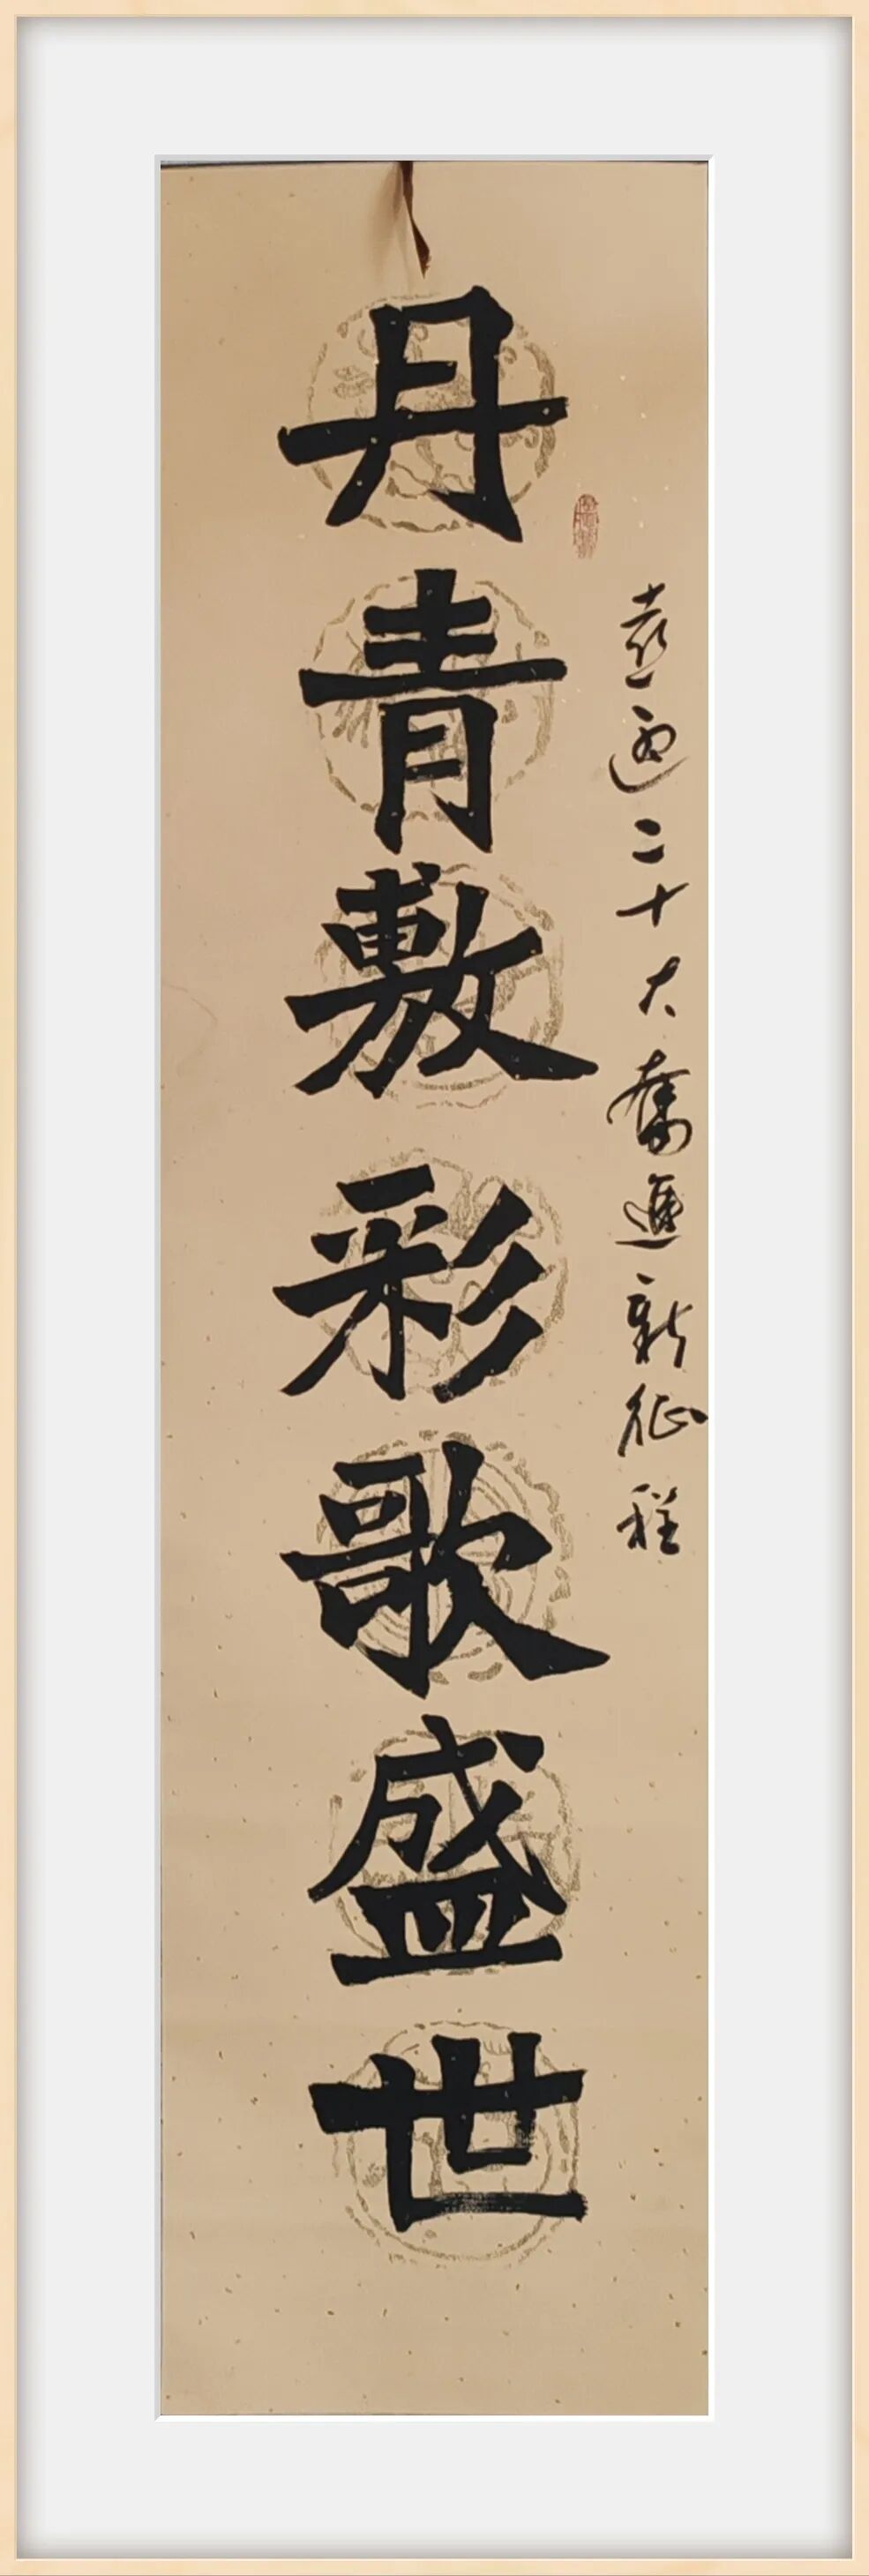 喜迎二十大奮進新征程
丹青敷彩歌盛世